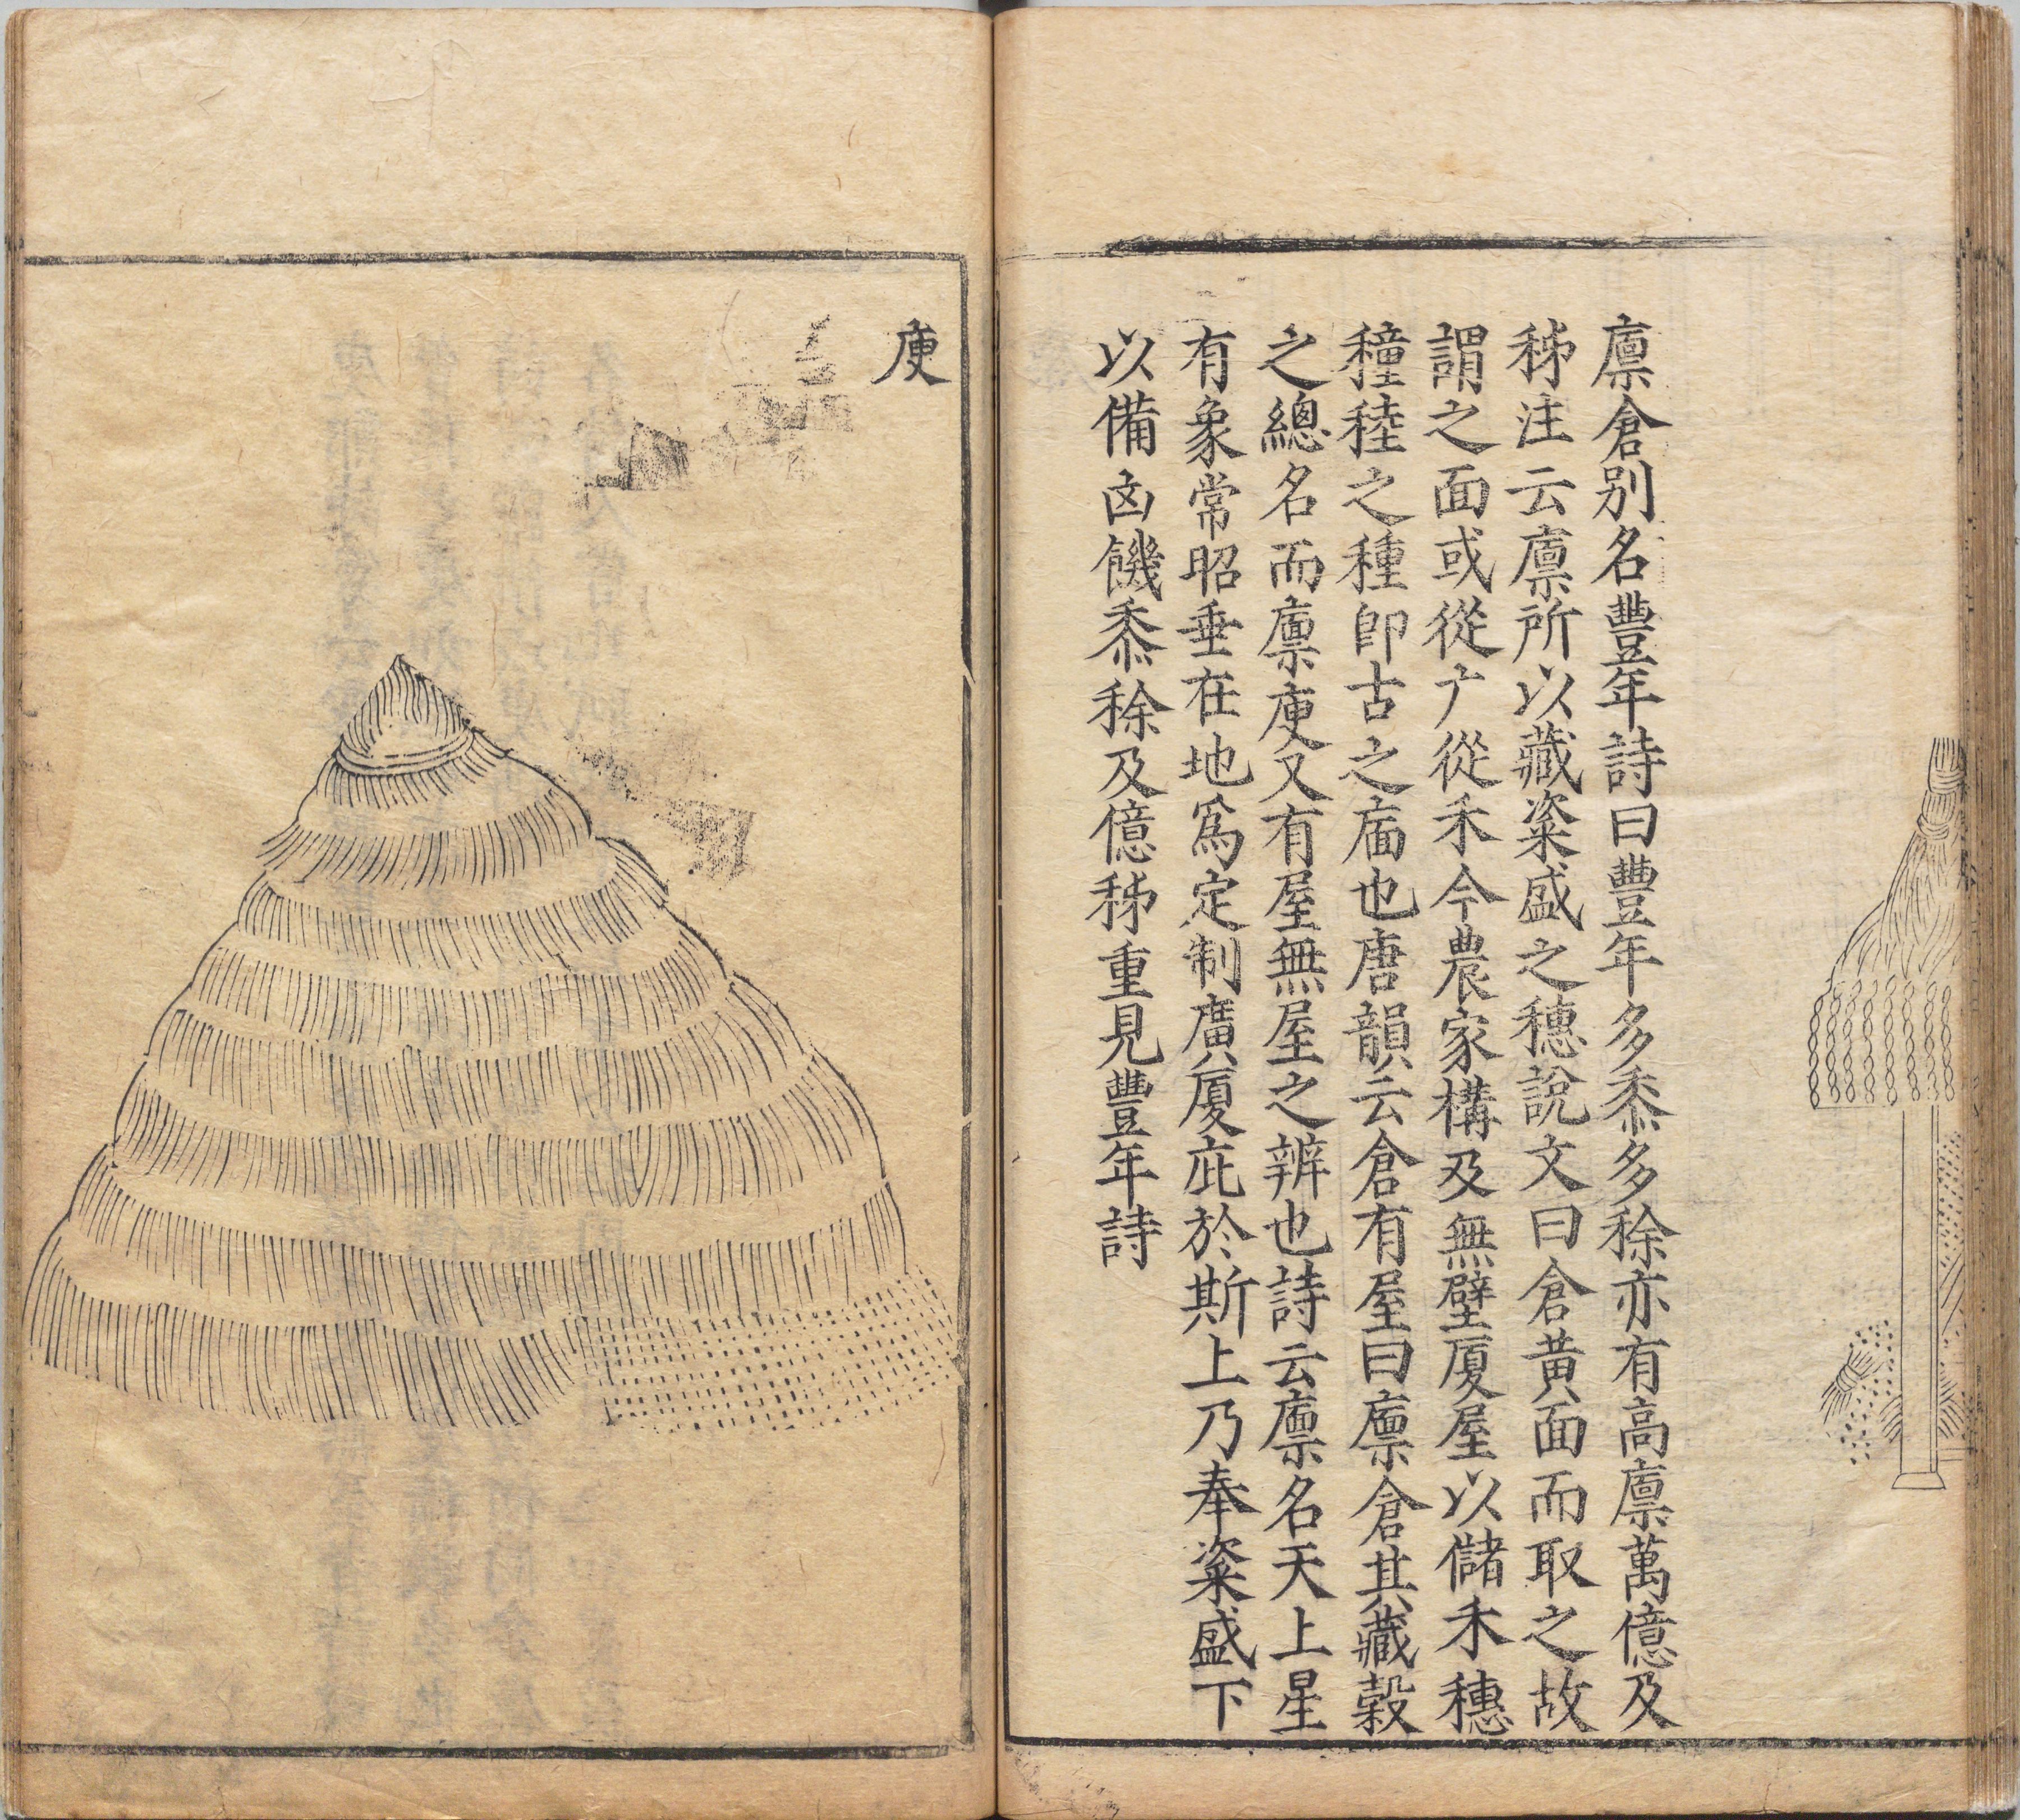 廪倉别名豐年詩曰豐年多黍多稌亦有高廪萬億及
秭注云廪所以藏粢盛之穗說文曰倉黄㐭而取之故
謂之㐭或從广從禾今農家構及無壁厦屋以儲禾穗
穜稑之種即古之㐭也唐韻云倉有屋曰廪倉其藏穀
之總名而廪庾又有屋無屋之辨也詩云廪名天上星
有象常昭垂在地爲定制廣厦庇於斯上乃奉粢盛下
以備凶饑黍稌及億秭重見豐年詩
庾